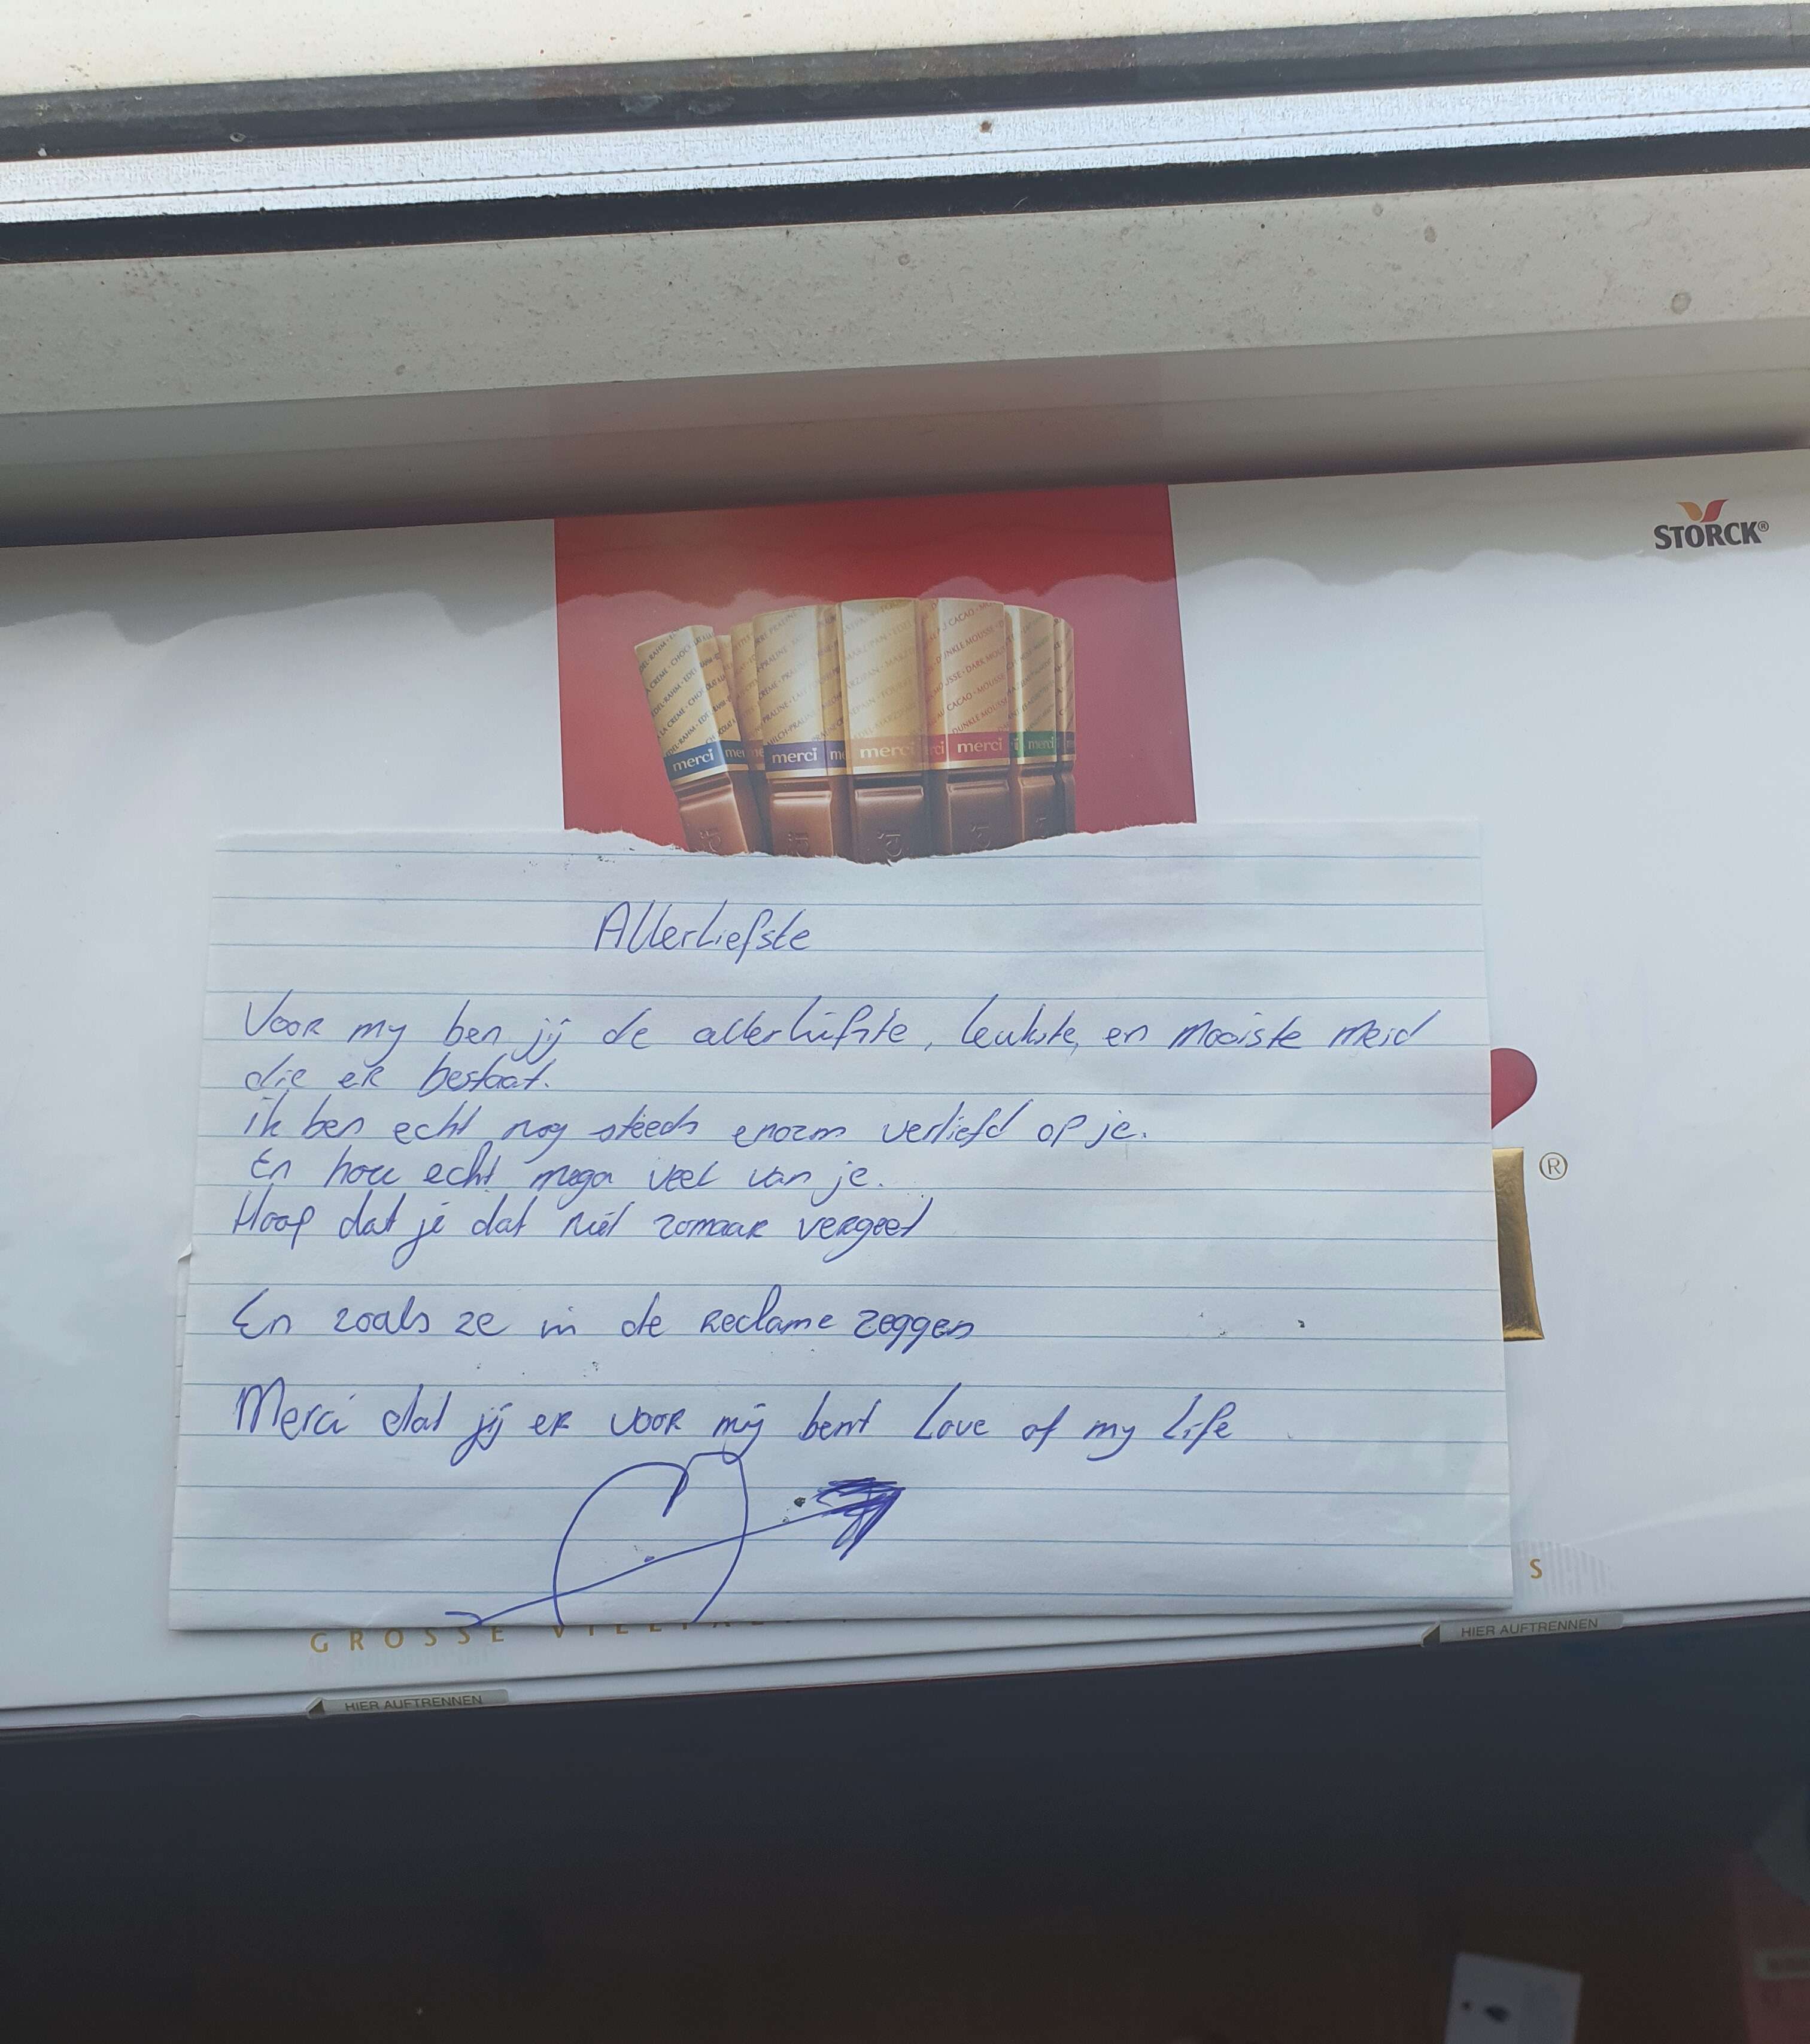 STORCK®
merci
merci
merci
merci
merci
Allerliefste
Voor my ben jij de allerliefste, leukste, en mooiste meid
die er bestaat.
ik ben echt nog steeds enorm verliefd op je.
En hou echt mega veel van je.
Hoop dat je dat niet zomaar vergeet
En zoals ze in de reclame zeggen
Merci dat jij er voor mij bent Love of my Life
®
S
GROSSE
HIER AUFTRENNEN
HIER AUFTRENNEN